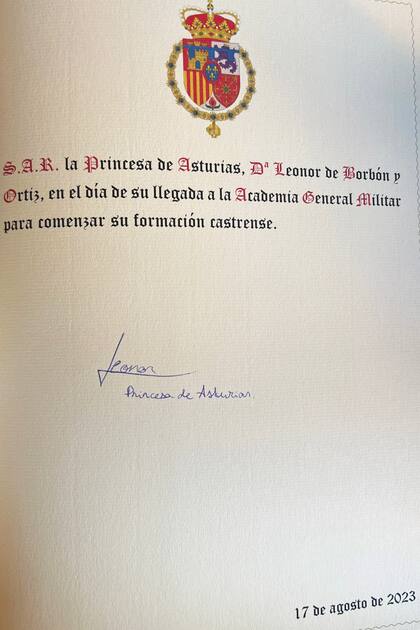 S.A.R. la Princesa de Asturias, Dª Leonor de Borbón y
Ortiz, en el día de su llegada a la Academia General Militar
para comenzar su formación castrense.
Leonor
Princesa de Asturias.
17 de agosto de 2023